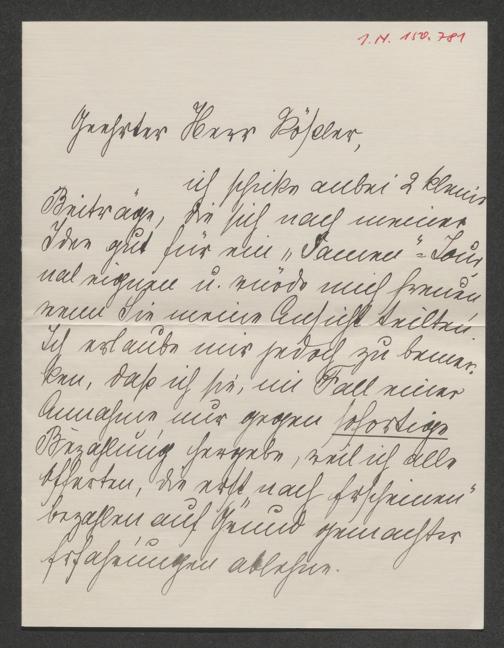 I.N. 150.781
Geehrter Herr Rößler,
ich schicke anbei 2 kleine
Beiträge, die sich nach meiner
Idee gut für ein „Damen"=Jour
nal eignen u. würde mich freuen
wenn Sie meine Ansicht teilten
Ich erlaube mir jedoch zu bemer-
ken, daß ich sie, im Fall einer
Annahme nur gegen sofortige
Bezahlung hergebe, weil ich alle
Offerten, die erst nach Erscheinen"
bezahlen auf Grund gemachter
Erfahrungen ablehne.